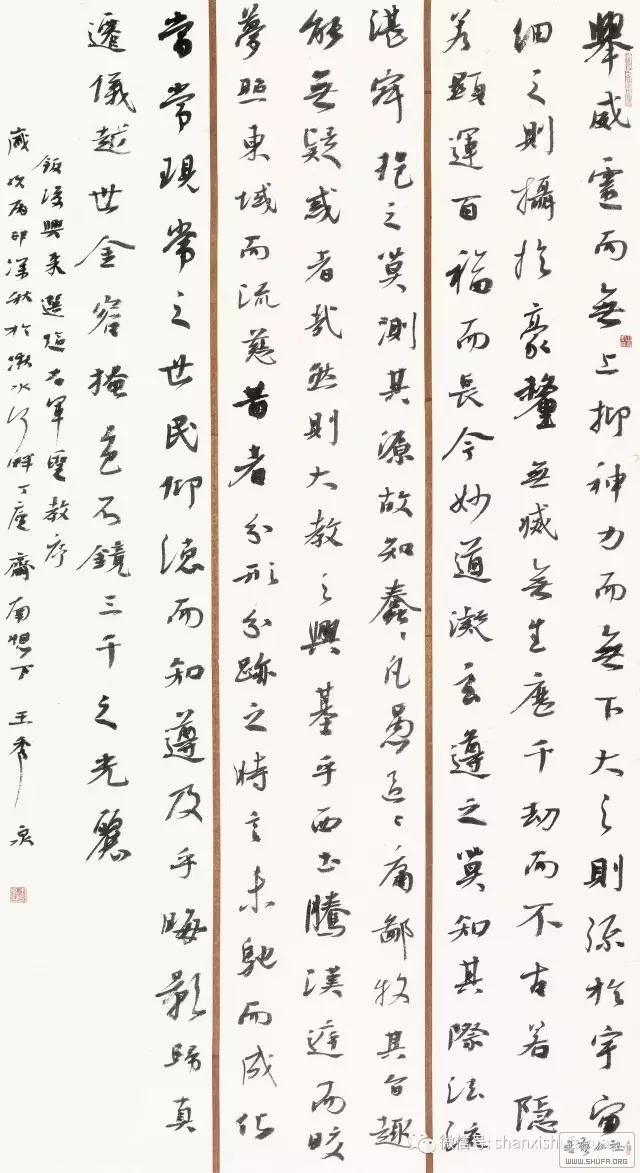 舉威靈而無上抑神力而無下大之則弥於宇宙
細之則攝於豪釐無滅無生歷千劫而不古若隱
若顯運百福而長今妙道凝玄遵之莫知其際法流
湛寂挹之莫測其源故知蠢〻凡愚區〻庸鄙投其旨趣
能無疑惑者哉然則大教之興基乎西土騰漢庭而皎
夢照東域而流慈昔者分形分跡之時言未馳而成化
當常現常之世民仰德而知遵及乎晦影歸真
遷儀越世金容掩色不鏡三千之光麗
飯後興來選臨右軍聖教序
歲次 深秋於 水河畔 齋南 下 王秀泉
微信号: shanxishufayuan
WWW.SHUFA.ORG